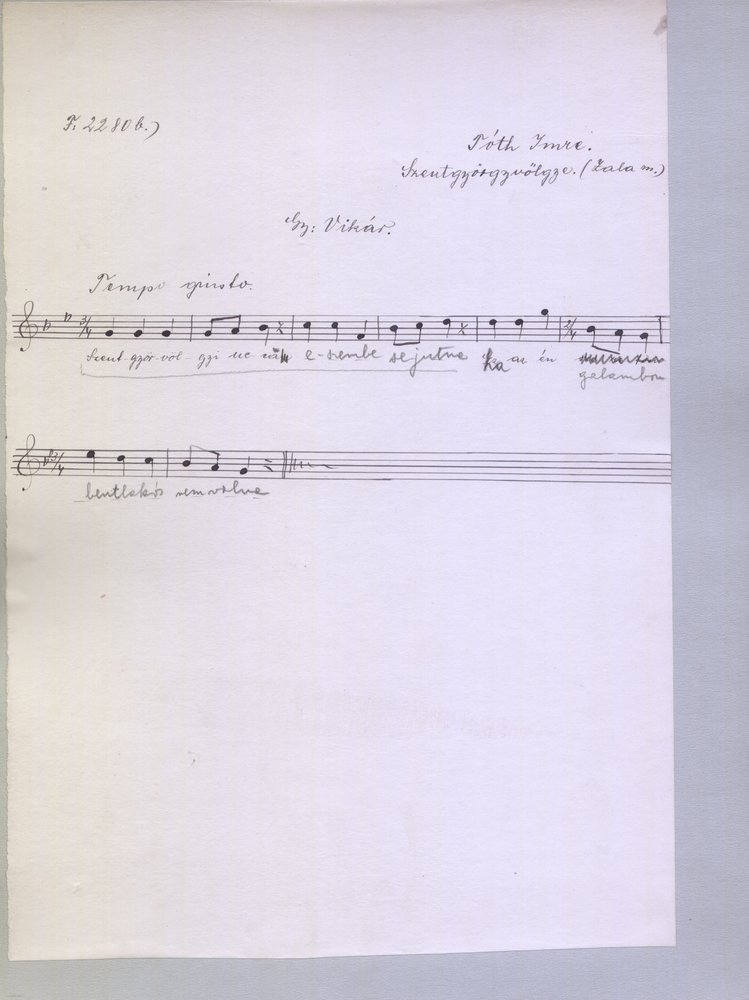 F. 2280 b.)
Tóth Imre.
Szentgyörgyvölgye. (Zala m.)
Gy: Vikár.
Tempo giusto.
3/4 2/4
Szent-györ-völ-gyi ut-cán e-szembe se jutna Ha az én
galambom
3/4
bentlakós nem volna